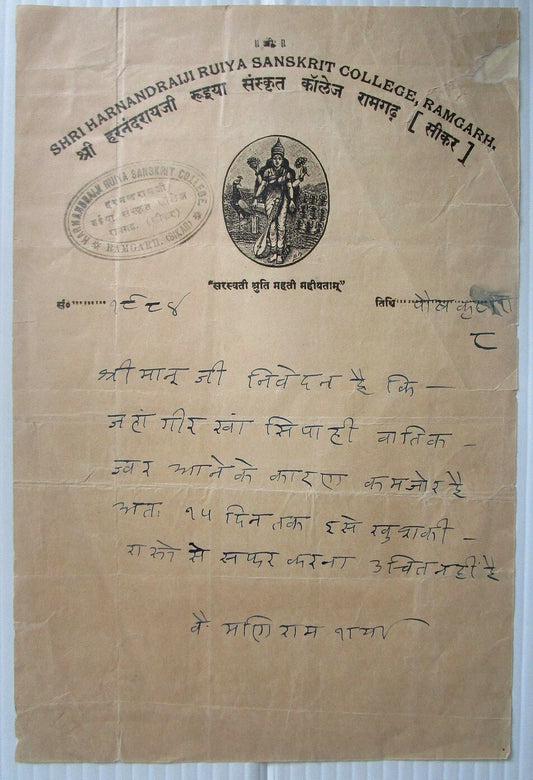 ॥ श्रीः ॥
SHRI HARNANDRAIJI RUIYA SANSKRIT COLLEGE, RAMGARH.
श्री हरनंदरायजी रूइया संस्कृत कॉलेज रामगढ़ [ सीकर ]
HARNANDRAIJI RUIYA SANSKRIT COLLEGE
हरनन्दरायजी
रुईया संस्कृत कॉलेज
रामगढ़, (सीकर)
RAMGARH. (SIKAR)
"सरस्वती श्रुति महती महीयताम्"
सं० १९८४ तिथि पौष कृष्ण
८
श्री मान् जी निवेदन है कि -
जहां गीर खां सिपाही वातिक -
ज्वर आने के कारण कमजोर है
अतः १५ दिन तक इसे खुश्की -
रास्ते से सफर करना उचित नहीं है
वै. मणिराम शर्मा